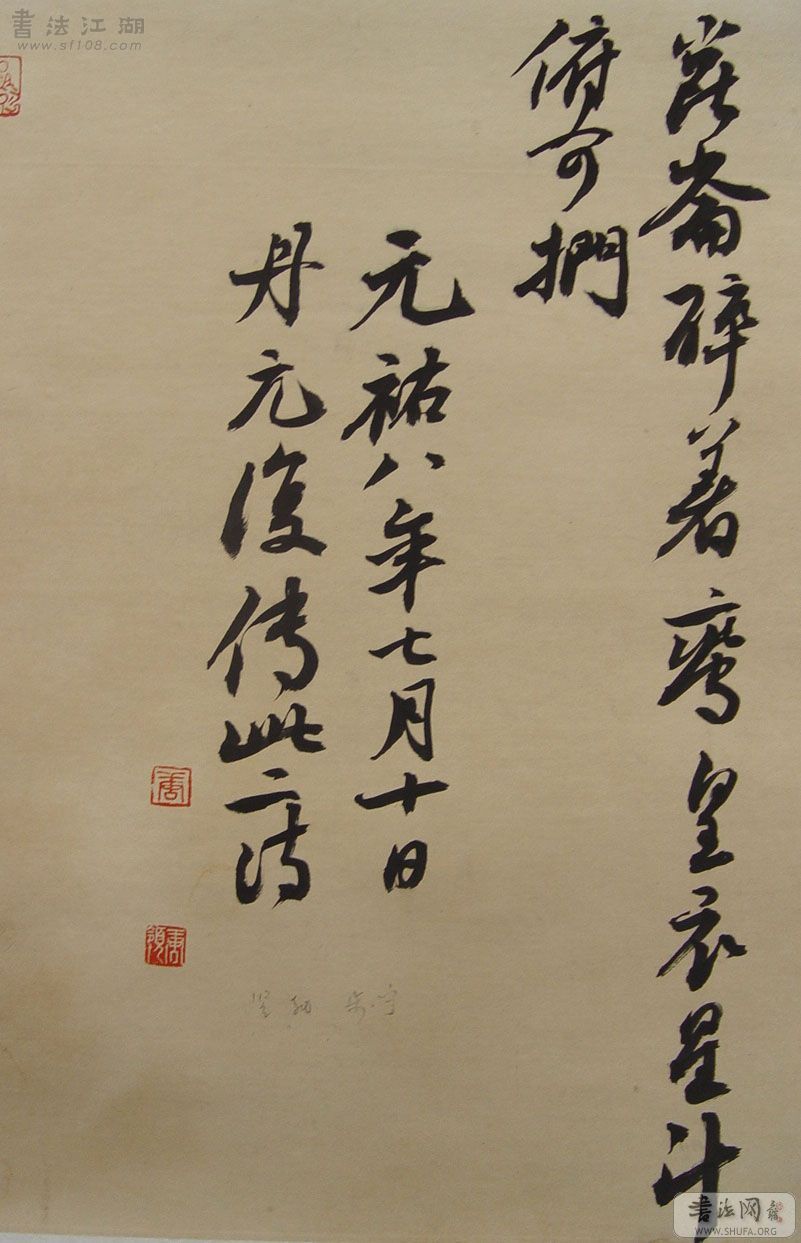 崑崙醉著鸞皇衣星斗
俯可捫
元祐八年七月十日
丹元復傳此二詩
書法江湖
www.sf108.com
書法网
WWW.SHUFA.ORG